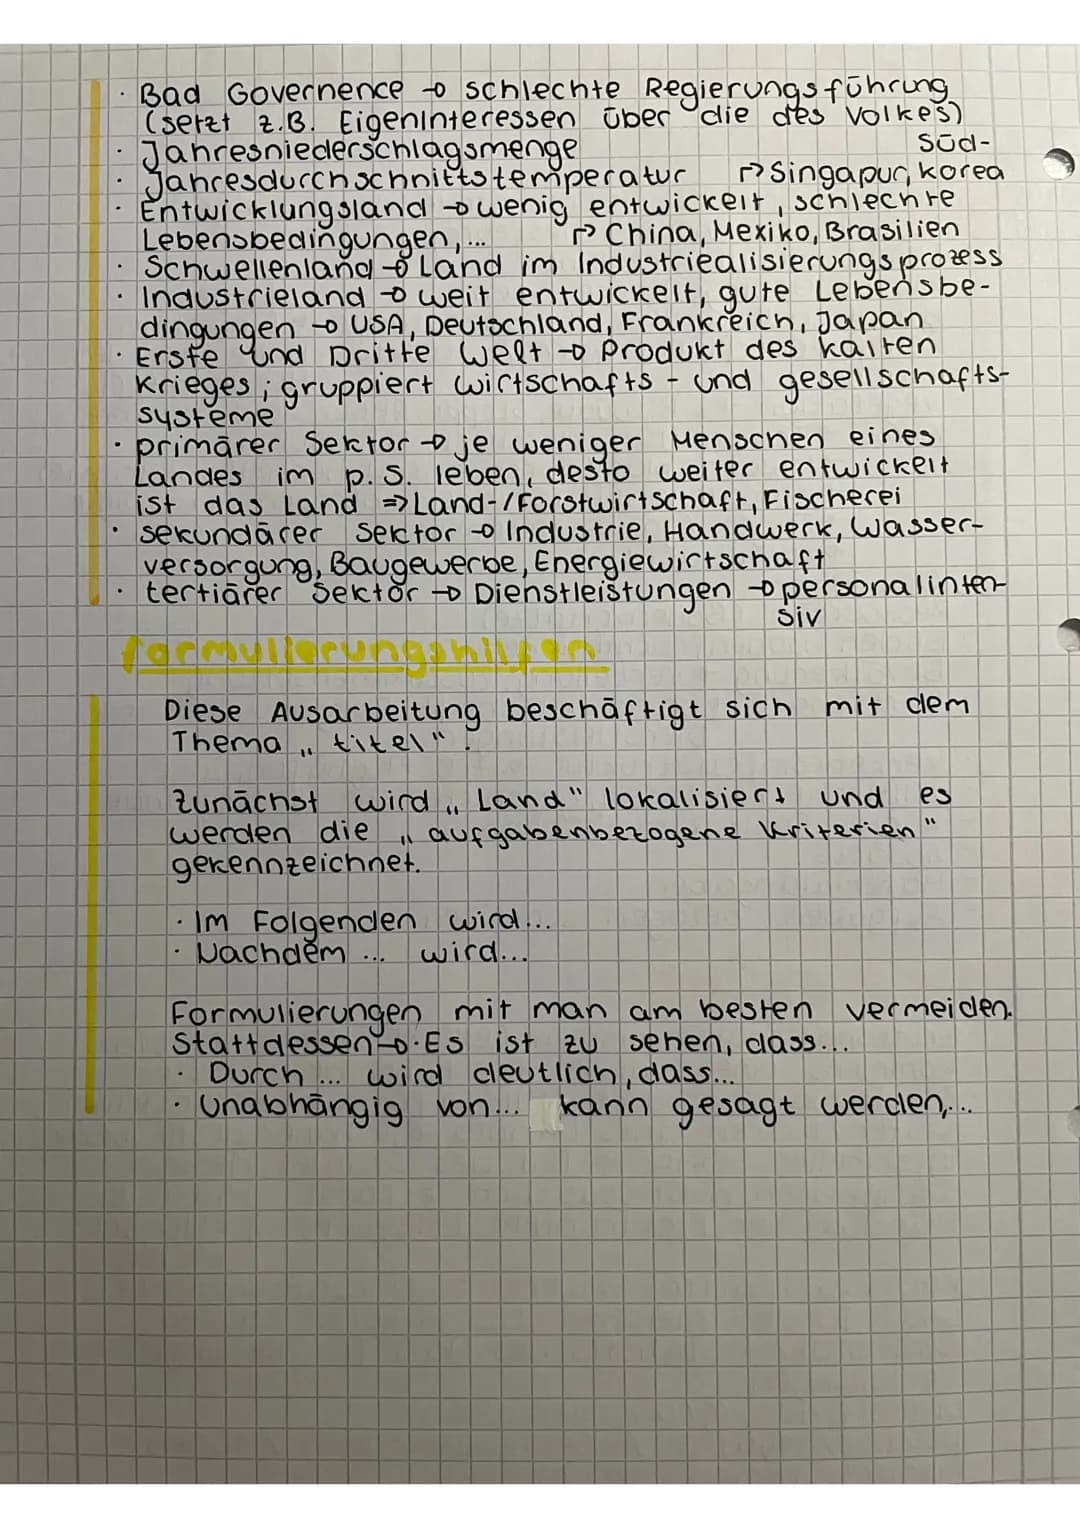 · Bad Governence → schlechte Regierungsführung
(setzt z.B. EigenInteressen über die des Volkes)
· Jahresniederschlagsmenge Süd-
· Jahresdurchschnittstemperatur ↱Singapur, korea
· Entwicklungsland → wenig entwickelt, schlechte
Lebensbedingungen, ... ↱ China, Mexiko, Brasilien
· Schwellenland → Land im Industriealisierungsprozess
· Industrieland → weit entwickelt, gute Lebensbe-
dingungen → USA, Deutschland, Frankreich, Japan
· Erste und Dritte Welt → Produkt des kalten
Krieges; gruppiert wirtschafts- und gesellschafts-
systeme
· primärer Sektor → je weniger Menschen eines
Landes im p.S. leben, desto weiter entwickelt
ist das Land => Land-/Forstwirtschaft, Fischerei
· sekundärer Sektor → Industrie, Handwerk, Wasser-
versorgung, Baugewerbe, Energiewirtschaft
· tertiärer Sektor → Dienstleistungen → personalinten-
siv
formulierungshilfen
Diese Ausarbeitung beschäftigt sich mit dem
Thema „titel".
Zunächst wird „Land" lokalisiert und es
werden die „aufgabenbezogene Kriterien"
gekennzeichnet.
· Im Folgenden wird...
· Nachdem ... wird...
Formulierungen mit man am besten vermeiden.
Stattdessen → · Es ist zu sehen, dass...
· Durch ... wird deutlich, dass...
· Unabhängig von... kann gesagt werden,...